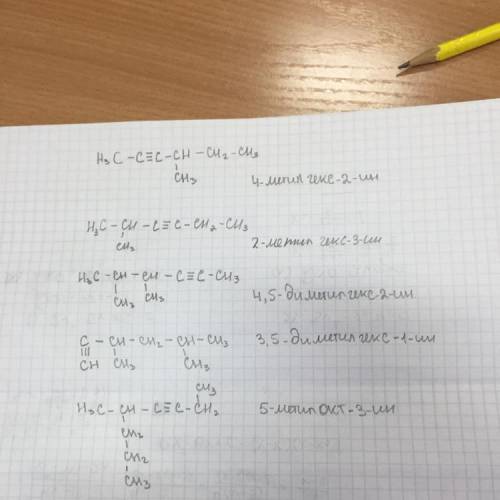 H₃C – C≡C – CH – CH₂ – CH₃
CH₃
4-метил гекс-2-ин
H₃C – CH – C≡C – CH₂ – CH₃
CH₃
2-метил гекс-3-ин
H₃C – CH – CH – C≡C – CH₃
CH₃ CH₃
4,5-диметилгекс-2-ин
C – CH – CH₂ – CH – CH₃
||| 
CH CH₃ CH₃
3,5-диметилгекс-1-ин
CH₃
H₃C – CH – C≡C – CH₂
5-метилокт-3-ин
CH₂
CH₂
CH₃